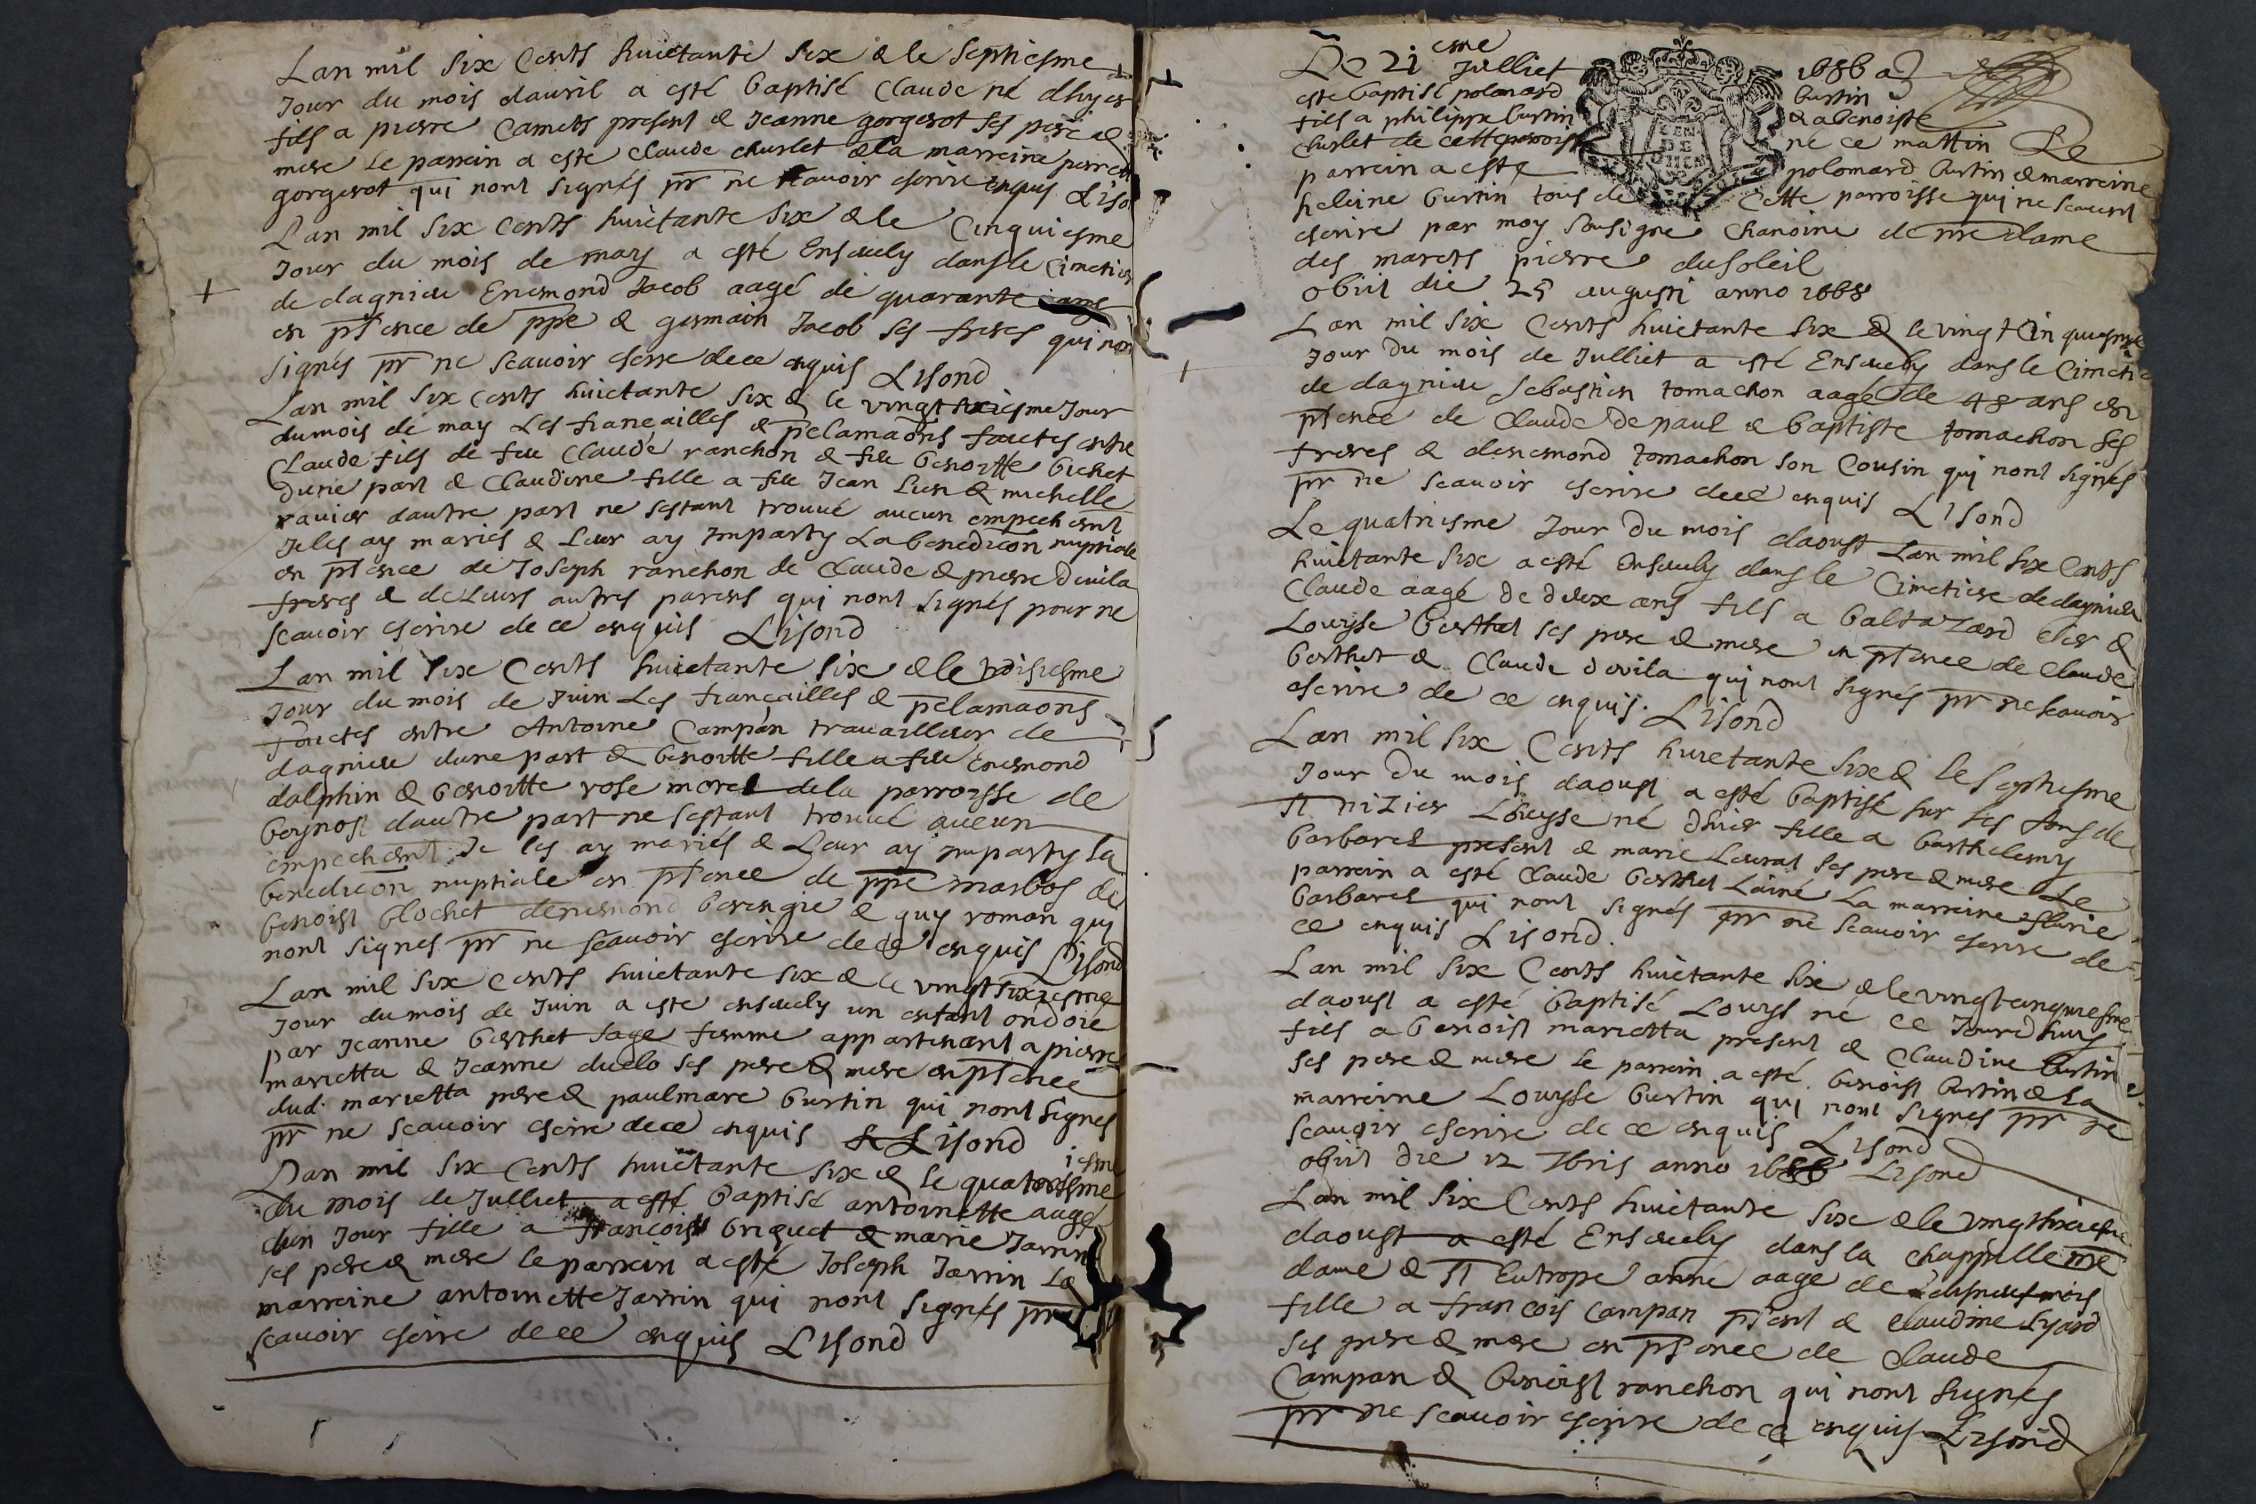 Lan mil six Cents huictante six & le septiesme
Jour du mois dauril a esté baptisé Claude né dhyer
fils a pierre Camets present & Jeanne gorgerot ses pere &
mere Le parrein a este Claude churlet & la marreine perrette
gorgerot qui nont signés pr ne scauoir escrire enquis Liso
Lan mil six Cents huictante six & le Cinquiesme
Jour du mois de may a esté Enseuely dans le Cimetier
de dagnieu Enemond Jacob aagé de quarante ans
en pnce de ppe & germain Jacob ses freres qui non
signés pr ne scauoir escrire de ce enquis Lisond
Lan mil six Cents huictante six & le vingt sixiesme Jour
du mois de may Les fiancailles & pclamaons faictes entre
Claude fils de feu Claude ranchon & feu benoitte bichet
dune part & Claudine fille a feu Jean Lien & michelle
rauier dautre part ne sestant trouué aucun empechent
Je les ay mariés & Leur ay Imparty La benedicon nuptiale
en psence de Joseph ranchon de Claude & pierre deuila
freres & de Leurs autres parens qui nont signés pour ne
scauoir escrire de ce enquis Lisond
Lan mil six Cents huictante six & le troisiesme
Jour du mois de Juin Les fiançailles & pclamaons
faictes entre Antoine Campan trauailleur de
dagnieu dune part & benoitte fille a feu Enemond
dalphin & benoitte rose morel de la parroisse de
beynost dautre part ne sestant trouué aucun
empechent Je les ay mariés & Leur ay Imparty La
benedicon nuptiale en psence de ppe marbos de
benoist blochet denemond berengie & guy roman qui
nont signes pr ne scauoir escrire de ce enquis Lisond
Lan mil six Cents huictante six & le vingt sixiesme
Jour du mois de Juin a este enseuely un enfant ondoié
par Jeanne berthet sage femme appartenant a pierre
marietta & Jeanne duclo ses pere & mere en psence
dud. marietta pere & paulmare burtin qui nont signes
pr ne scauoir escrire de ce enquis Lisond
Lan mil six Cents huictante six & le quatorsiesme
du mois de Julliet a esté baptisé antoinette aagé
dun Jour fille a francois briquet & marie Jarrin
ses pere & mere le parrein a esté Joseph Jarrin La
marreine antoinette Jarrin qui nont signés pr
scauoir escrire de ce enquis Lisond
Le 21 esme Julliet 1686 a
este baptisé polomard burtin
fils a philippe burtin & a benoiste
Churlet de cette paroisse né ce mattin Le
parrein a esté polomard burtin & marreine
heleine burtin tous de Cette parroisse qui ne scauent
escrire par moy sousigne Chanoine de nre dame
des marets pierre dusoleil
obiit die 25 augusti anno 1668
Lan mil six Cents huictante six & le vingt Cinquiesme
Jour du mois de Julliet a esté Enseuely dans le Cimetie
de dagnieu Sebastien tomachon aagé de 48 ans en
psence de Claude de paul & baptiste tomachon ses
freres & denemond tomachon son Cousin qui nont signés
pr ne scauoir escrire de ce enquis Lisond
Le quatriesme Jour du mois daoust Lan mil six Cents
huictante six a esté enseuely dans le Cimetiere de dagnieu
Claude aagé de deux ans fils a baltazard & 
Louyse berthet ses pere & mere en psence de Claude
berthet & Claude deuila qui nont signés pr ne scauoir
escrire de ce enquis. Lisond
Lan mil six Cents huictante six & le septiesme
Jour du mois daoust a esté baptisé sur les fons de
st nizier Louysse né dhier fille a barthelemy
barbaret present & marie Leurat ses pere & mere Le
parrein a esté Claude berthet Lainé La marreine florie
barbaret qui nont signés pr ne scauoir escrire de
ce enquis Lisond.
Lan mil six Cents huictante six & le vingt cinquiesme
daoust a esté baptisé Louys né ce Jourdhuy
fils a benoist marietta present & Claudine burtin
ses pere & mere le parrein a esté benoist burtin & La
marreine Louysse burtin qui nont signes pr ne
scauoir escrire de ce enquis Lisond
obiit die 12 7bris anno 1686 Lisond
Lan mil six Cents huictante six & le vingt
daoust a esté Enseuely dans la chappelle nre
dame & st Eutrope anne aage de mois
fille a francois Campan psent & Claudine Lyard
ses pere & mere en psence de Claude
Campan & benoist ranchon qui nont signés
pr ne scauoir escrire de ce enquis Lisond